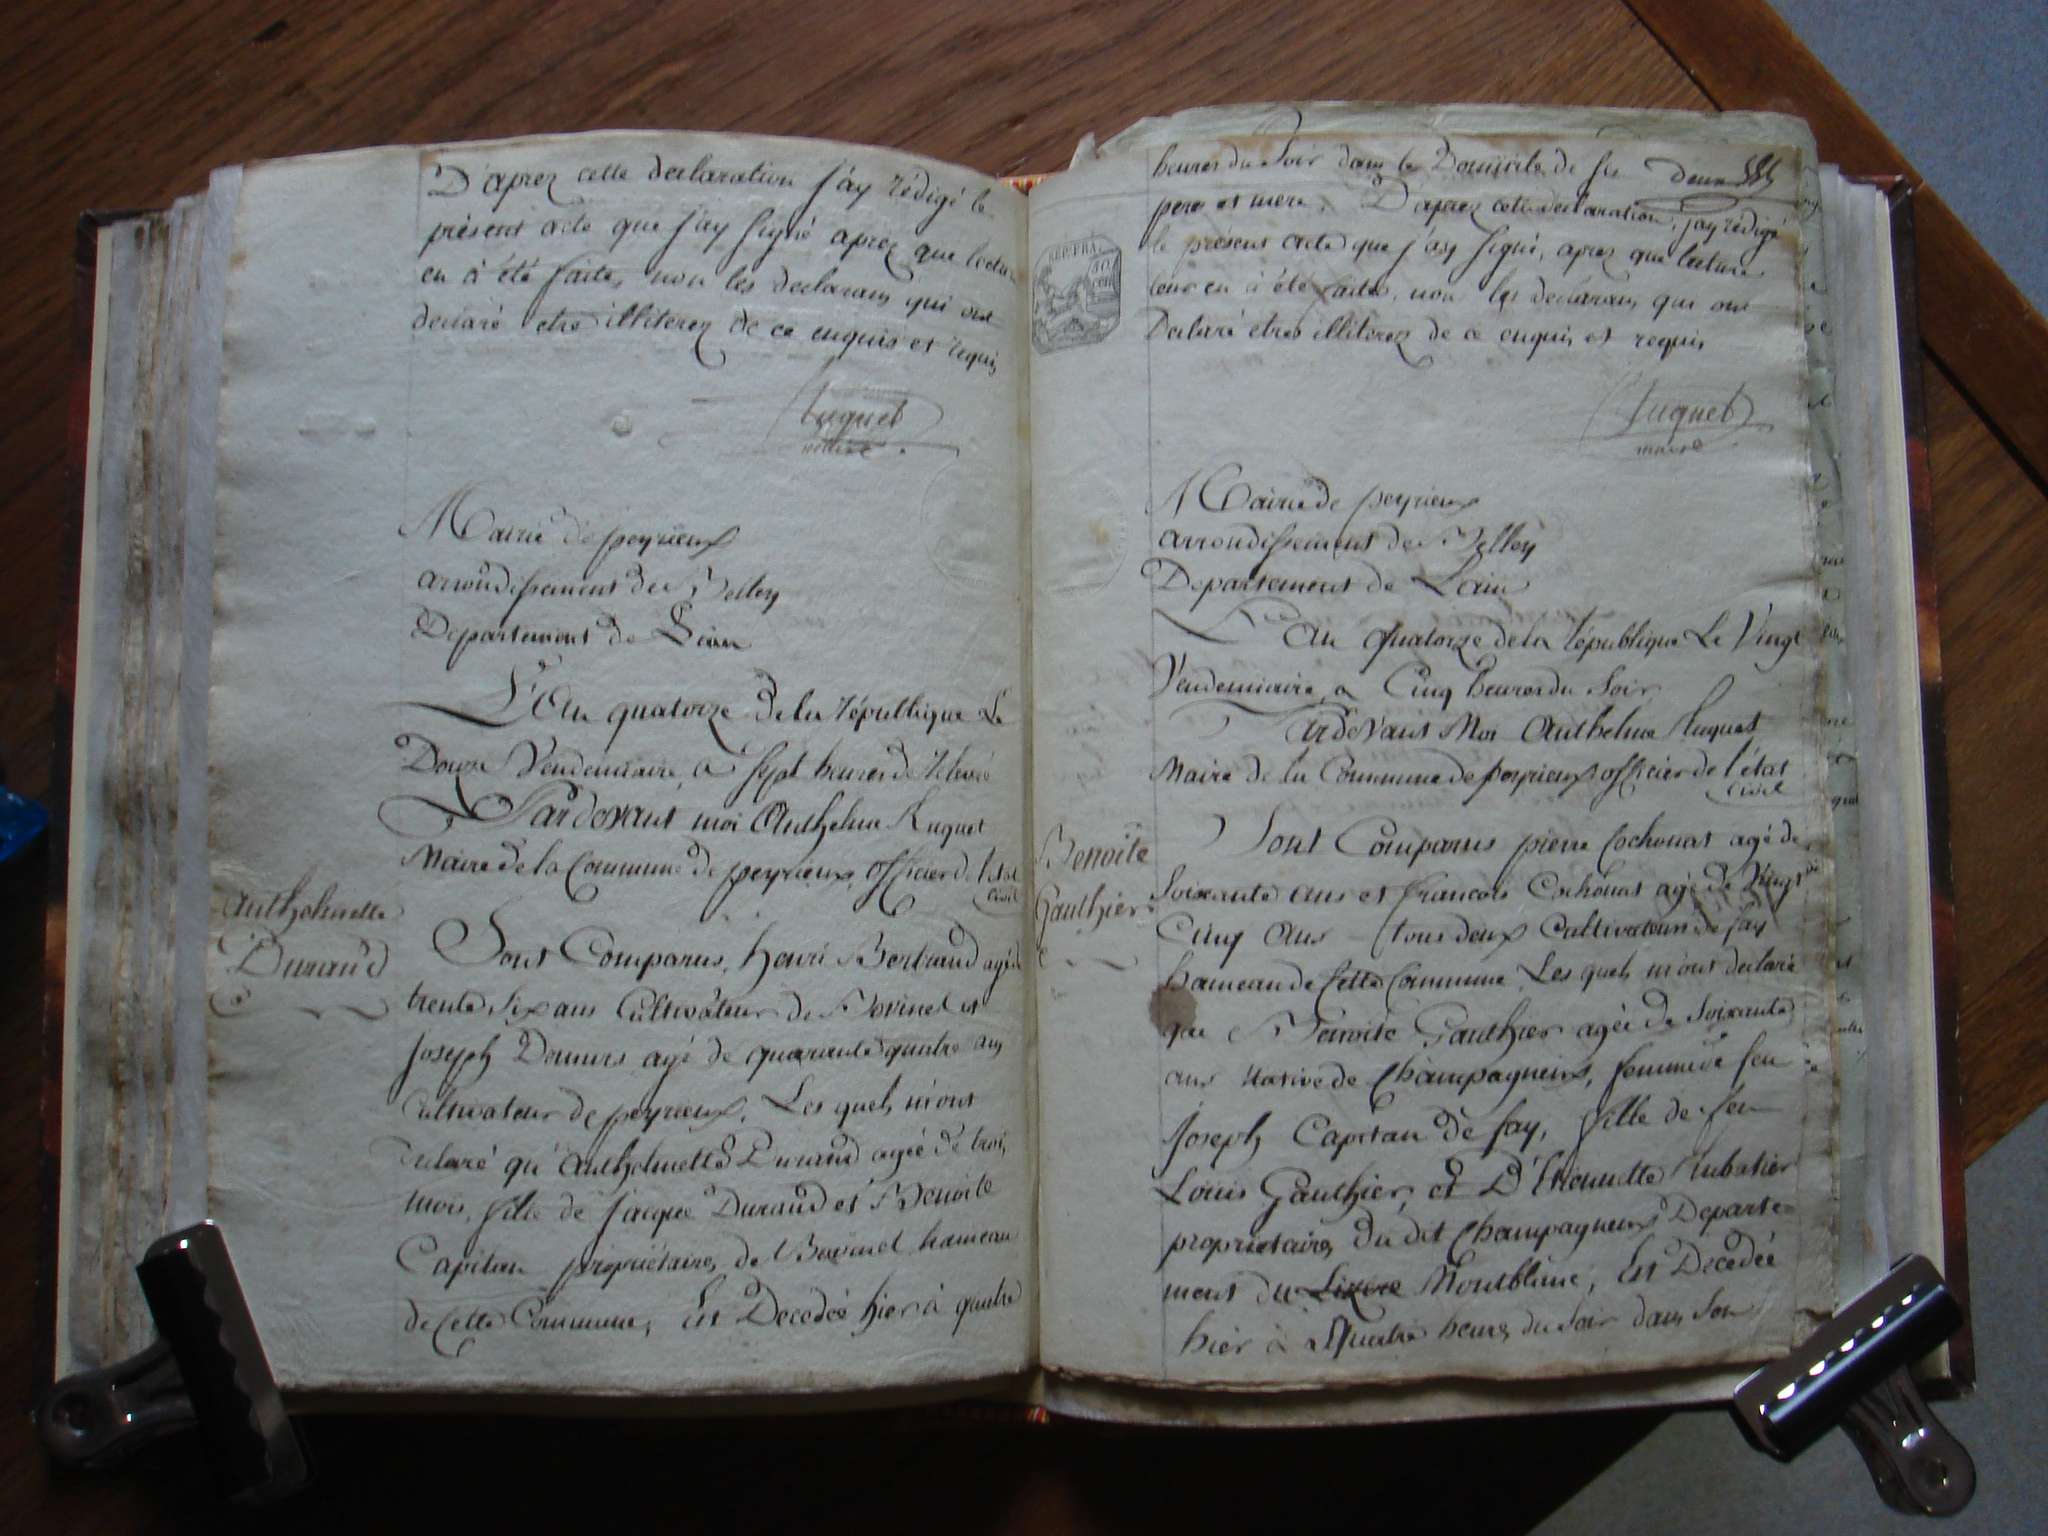 D'aprez cette declaration j'ay rédigé le
présent acte que j'ay signé aprez que lecture
en à été faite, non les declarans qui ont
declaré etre illiterez de ce enquis et requis
Luquet
maire
Mairie de peyrieux
arrondissement de Belley
Departement de Lain
L'An quatorze de la république Le
Douze Vendemiaire à sept heures de relevé
Pardevant moi Anthelme Luquet
Maire de la Commune de peyrieux, officier de l'état
civil
Anthelmette
Durand
Sont Comparus, henri Bertrand agé de
trente six ans Cultivateur de Bovinel et
Joseph Demurs agé de quarante quatre ans
Cultivateur de peyrieux, Les quels m'ont
declaré qu'Anthelmette Durand agée de trois
mois, fille de Jacque Durand et Benoite
Capitan propriétaires de Bovinel hameau
de Cette Commune, Est Decedée hier à quatre
heures du Soir dans le Domicile de ses
pere et mere. D'aprez cette declaration, j'ay rédigé
le présent acte que j'ay signé, aprez que lecture
leur en à été faite, non les declarans qui ont
Declaré etres illiterez de ce enquis et requis
REP. FRA.
Luquet
maire
Mairie de peyrieux
arrondissement de Belley
Departement de Lain
L'An quatorze de la république Le Vingt
Vendemiaire a Cinq heures du Soir
Pardevant Moi Anthelme Luquet
Maire de la Commune de peyrieux officier de l'état
civil
Benoite
Gauthier
Sont Comparus pierre Cochonat agé de
Soixante ans et francois Cochonat agé de Vingt
Cinq Ans tous deux Cultivateurs de fay
hameau de Cette Commune, Les quels m'ont declaré
que Benoite Gauthier agée de Soixante
ans native de Champagneux, femme de feu
Joseph Capitan de fay, fille de feu
Louis Gauthier, et D'Etiennette Rubatier
proprietaires du dit Champagneux Departe=
ment du Montblanc, Est Decedée
hier à Quatre heures du Soir dans Son